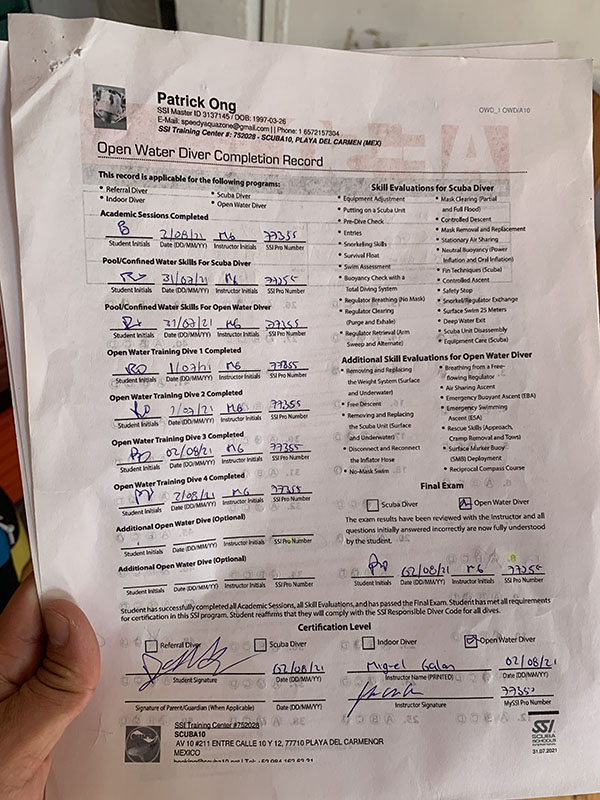 Patrick Ong
SSI Master ID 3137145 / DOB: 1997-03-26
E-Mail: speedyaquazone@gmail.com | | Phone: 1 6572157304
SSI Training Center #: 752028 - SCUBA10, PLAYA DEL CARMEN (MEX)
OWD_1 OWD/A10
Open Water Diver Completion Record
This record is applicable for the following programs:
• Referral Diver
• Scuba Diver
• Indoor Diver
• Open Water Diver
Academic Sessions Completed
2/08/21 MG 77355
Student Initials Date (DD/MM/YY) Instructor Initials SSI Pro Number
Pool/Confined Water Skills For Scuba Diver
31/07/21 MG 77355
Student Initials Date (DD/MM/YY) Instructor Initials SSI Pro Number
Pool/Confined Water Skills For Open Water Diver
31/07/21 MG 77355
Student Initials Date (DD/MM/YY) Instructor Initials SSI Pro Number
Open Water Training Dive 1 Completed
MG 77355
Student Initials Date (DD/MM/YY) Instructor Initials SSI Pro Number
Open Water Training Dive 2 Completed
MG 77355
Student Initials Date (DD/MM/YY) Instructor Initials SSI Pro Number
Open Water Training Dive 3 Completed
02/08/21 MG 77355
Student Initials Date (DD/MM/YY) Instructor Initials SSI Pro Number
Open Water Training Dive 4 Completed
2/08/21 MG 77355
Student Initials Date (DD/MM/YY) Instructor Initials SSI Pro Number
Additional Open Water Dive (Optional)
Student Initials Date (DD/MM/YY) Instructor Initials SSI Pro Number
Additional Open Water Dive (Optional)
Student Initials Date (DD/MM/YY) Instructor Initials SSI Pro Number
Skill Evaluations for Scuba Diver
• Equipment Adjustment
• Putting on a Scuba Unit
• Pre-Dive Check
• Entries
• Snorkeling Skills
• Survival Float
• Swim Assessment
• Buoyancy Check with a
Total Diving System
• Regulator Breathing (No Mask)
• Regulator Clearing
(Purge and Exhale)
• Regulator Retrieval (Arm
Sweep and Alternate)
• Mask Clearing (Partial
and Full Flood)
• Controlled Descent
• Mask Removal and Replacement
• Stationary Air Sharing
• Neutral Buoyancy (Power
Inflation and Oral Inflation)
• Fin Techniques (Scuba)
• Controlled Ascent
• Safety Stop
• Snorkel/Regulator Exchange
• Surface Swim 25 Meters
• Deep Water Exit
• Scuba Unit Disassembly
• Equipment Care (Scuba)
Additional Skill Evaluations for Open Water Diver
• Removing and Replacing
the Weight System (Surface
and Underwater)
• Free Descent
• Removing and Replacing
the Scuba Unit (Surface
and Underwater)
• Disconnect and Reconnect
the Inflator Hose
• No-Mask Swim
• Breathing from a Free-
flowing Regulator
• Air Sharing Ascent
• Emergency Buoyant Ascent (EBA)
• Emergency Swimming
Ascent (ESA)
• Rescue Skills (Approach,
Cramp Removal and Tows)
• Surface Marker Buoy
(SMB) Deployment
• Reciprocal Compass Course
Final Exam
Scuba Diver Open Water Diver
The exam results have been reviewed with the Instructor and all
questions initially answered incorrectly are now fully understood
by the student.
02/08/21 MG 77355
Student Initials Date (DD/MM/YY) Instructor Initials SSI Pro Number
Student has successfully completed all Academic Sessions, all Skill Evaluations, and has passed the Final Exam. Student has met all requirements
for certification in this SSI program. Student reaffirms that they will comply with the SSI Responsible Diver Code for all dives.
Certification Level
Referral Diver Scuba Diver Indoor Diver Open Water Diver
02/08/21 Miguel Galan 02/08/21
Student Signature Date (DD/MM/YY) Instructor Name (PRINTED) Date (DD/MM/YY)
77355
Signature of Parent/Guardian (When Applicable) Date (DD/MM/YY) Instructor Signature MySSI Pro Number
SSI Training Center #752028
SCUBA10
AV 10 #211 ENTRE CALLE 10 Y 12, 77710 PLAYA DEL CARMENQR
MEXICO
SSI
SCUBA
SCHOOLS
INTERNATIONAL
31.07.2021